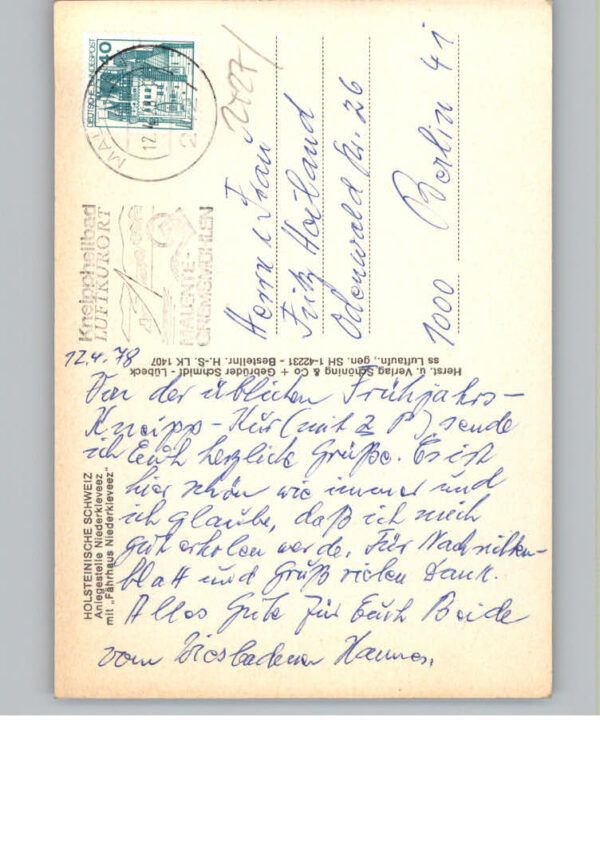 12.4.78
Von der üblichen Frühjahrs-
Kneipp-Kur (mit 2 P) sende
ich Euch herzliche Grüße. Es ist
hier schön wie immer und
ich glaube, daß ich mich
gut erholen werde. Für Nachrichten-
blatt und Gruß vielen Dank.
Alles Gute für Euch Beide
vom Wiesbadener Hannes.
HOLSTEINISCHE SCHWEIZ
Anlegestelle Niederkleveez
mit „Fährhaus Niederkleveez"
Herst. u. Verlag Schöning & Co + Gebrüder Schmidt - Lübeck
ss Luftaufn., gen. SH 1-42231 - Bestellnr. H.-S. LK 1407
Kneippheilbad
LUFTKURORT
MALENTE-
GREMSMÜHLEN
DEUTSCHE BUNDESPOST
40
12.4
Herrn u Frau
Fritz Hoiland
Odenwald str. 26
1000 Berlin 41